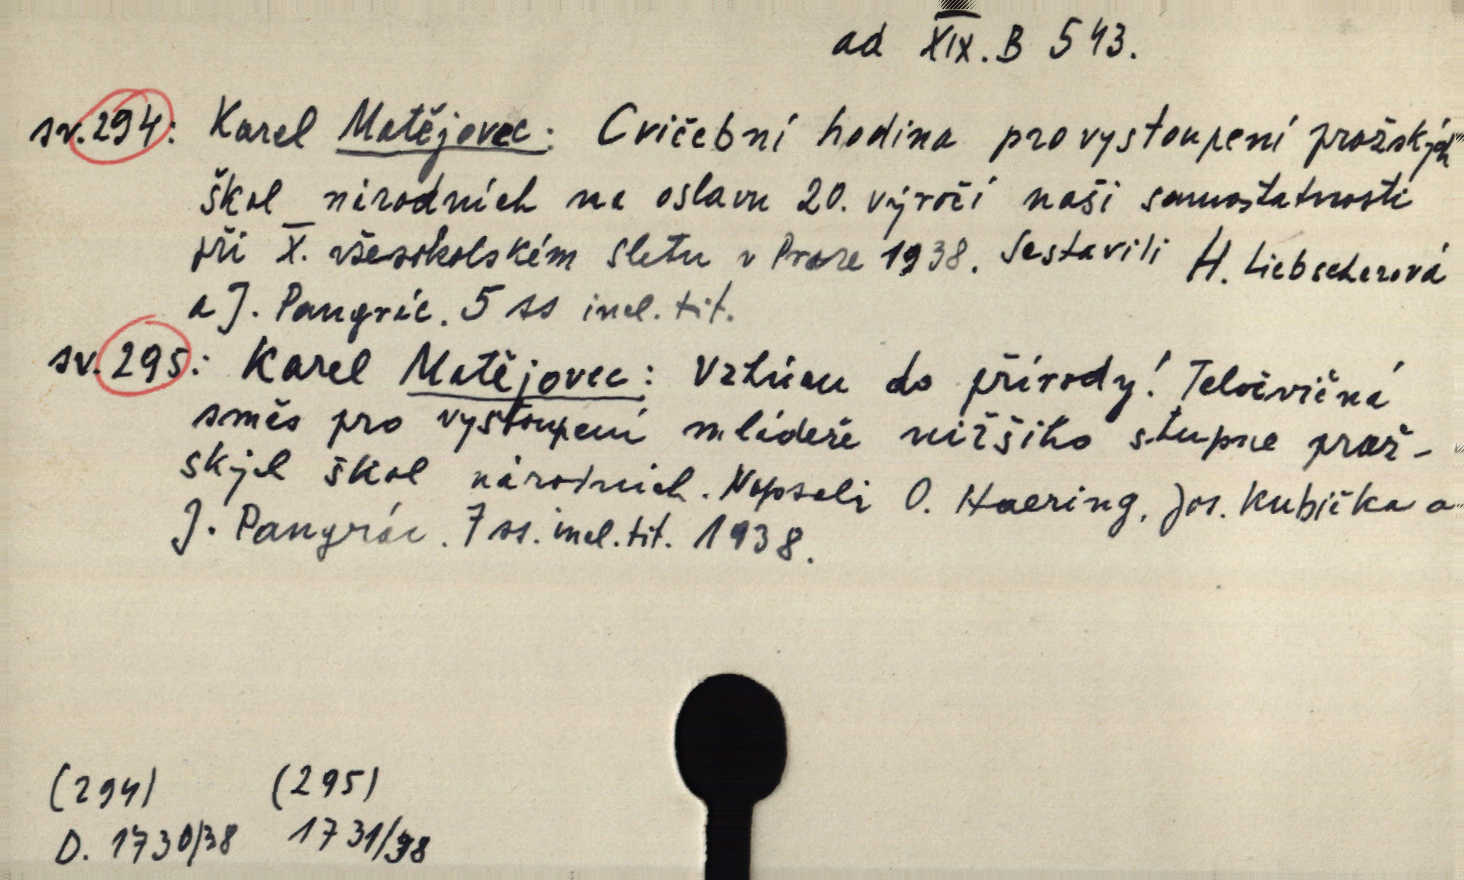 ad XIX. B 543.
sv. 294: Karel Matějovec: Cvičební hodina pro vystoupení pražských
škol národních na oslavu 20. výročí naší samostatnosti
při X. všesokolském sletu v Praze 1938. Sestavili H. Liebscherová
a J. Pangrác. 5 ss incl. tit.
sv. 295: Karel Matějovec: Vzhůru do přírody! Tělocvičná
směs pro vystoupení mládeže nižšího stupně praž-
ských škol národních. Napsali O. Haering, Jos. Kubička a
J. Pangrác. 7 ss. incl. tit. 1938.
(294) (295)
D. 1730/38 1731/38